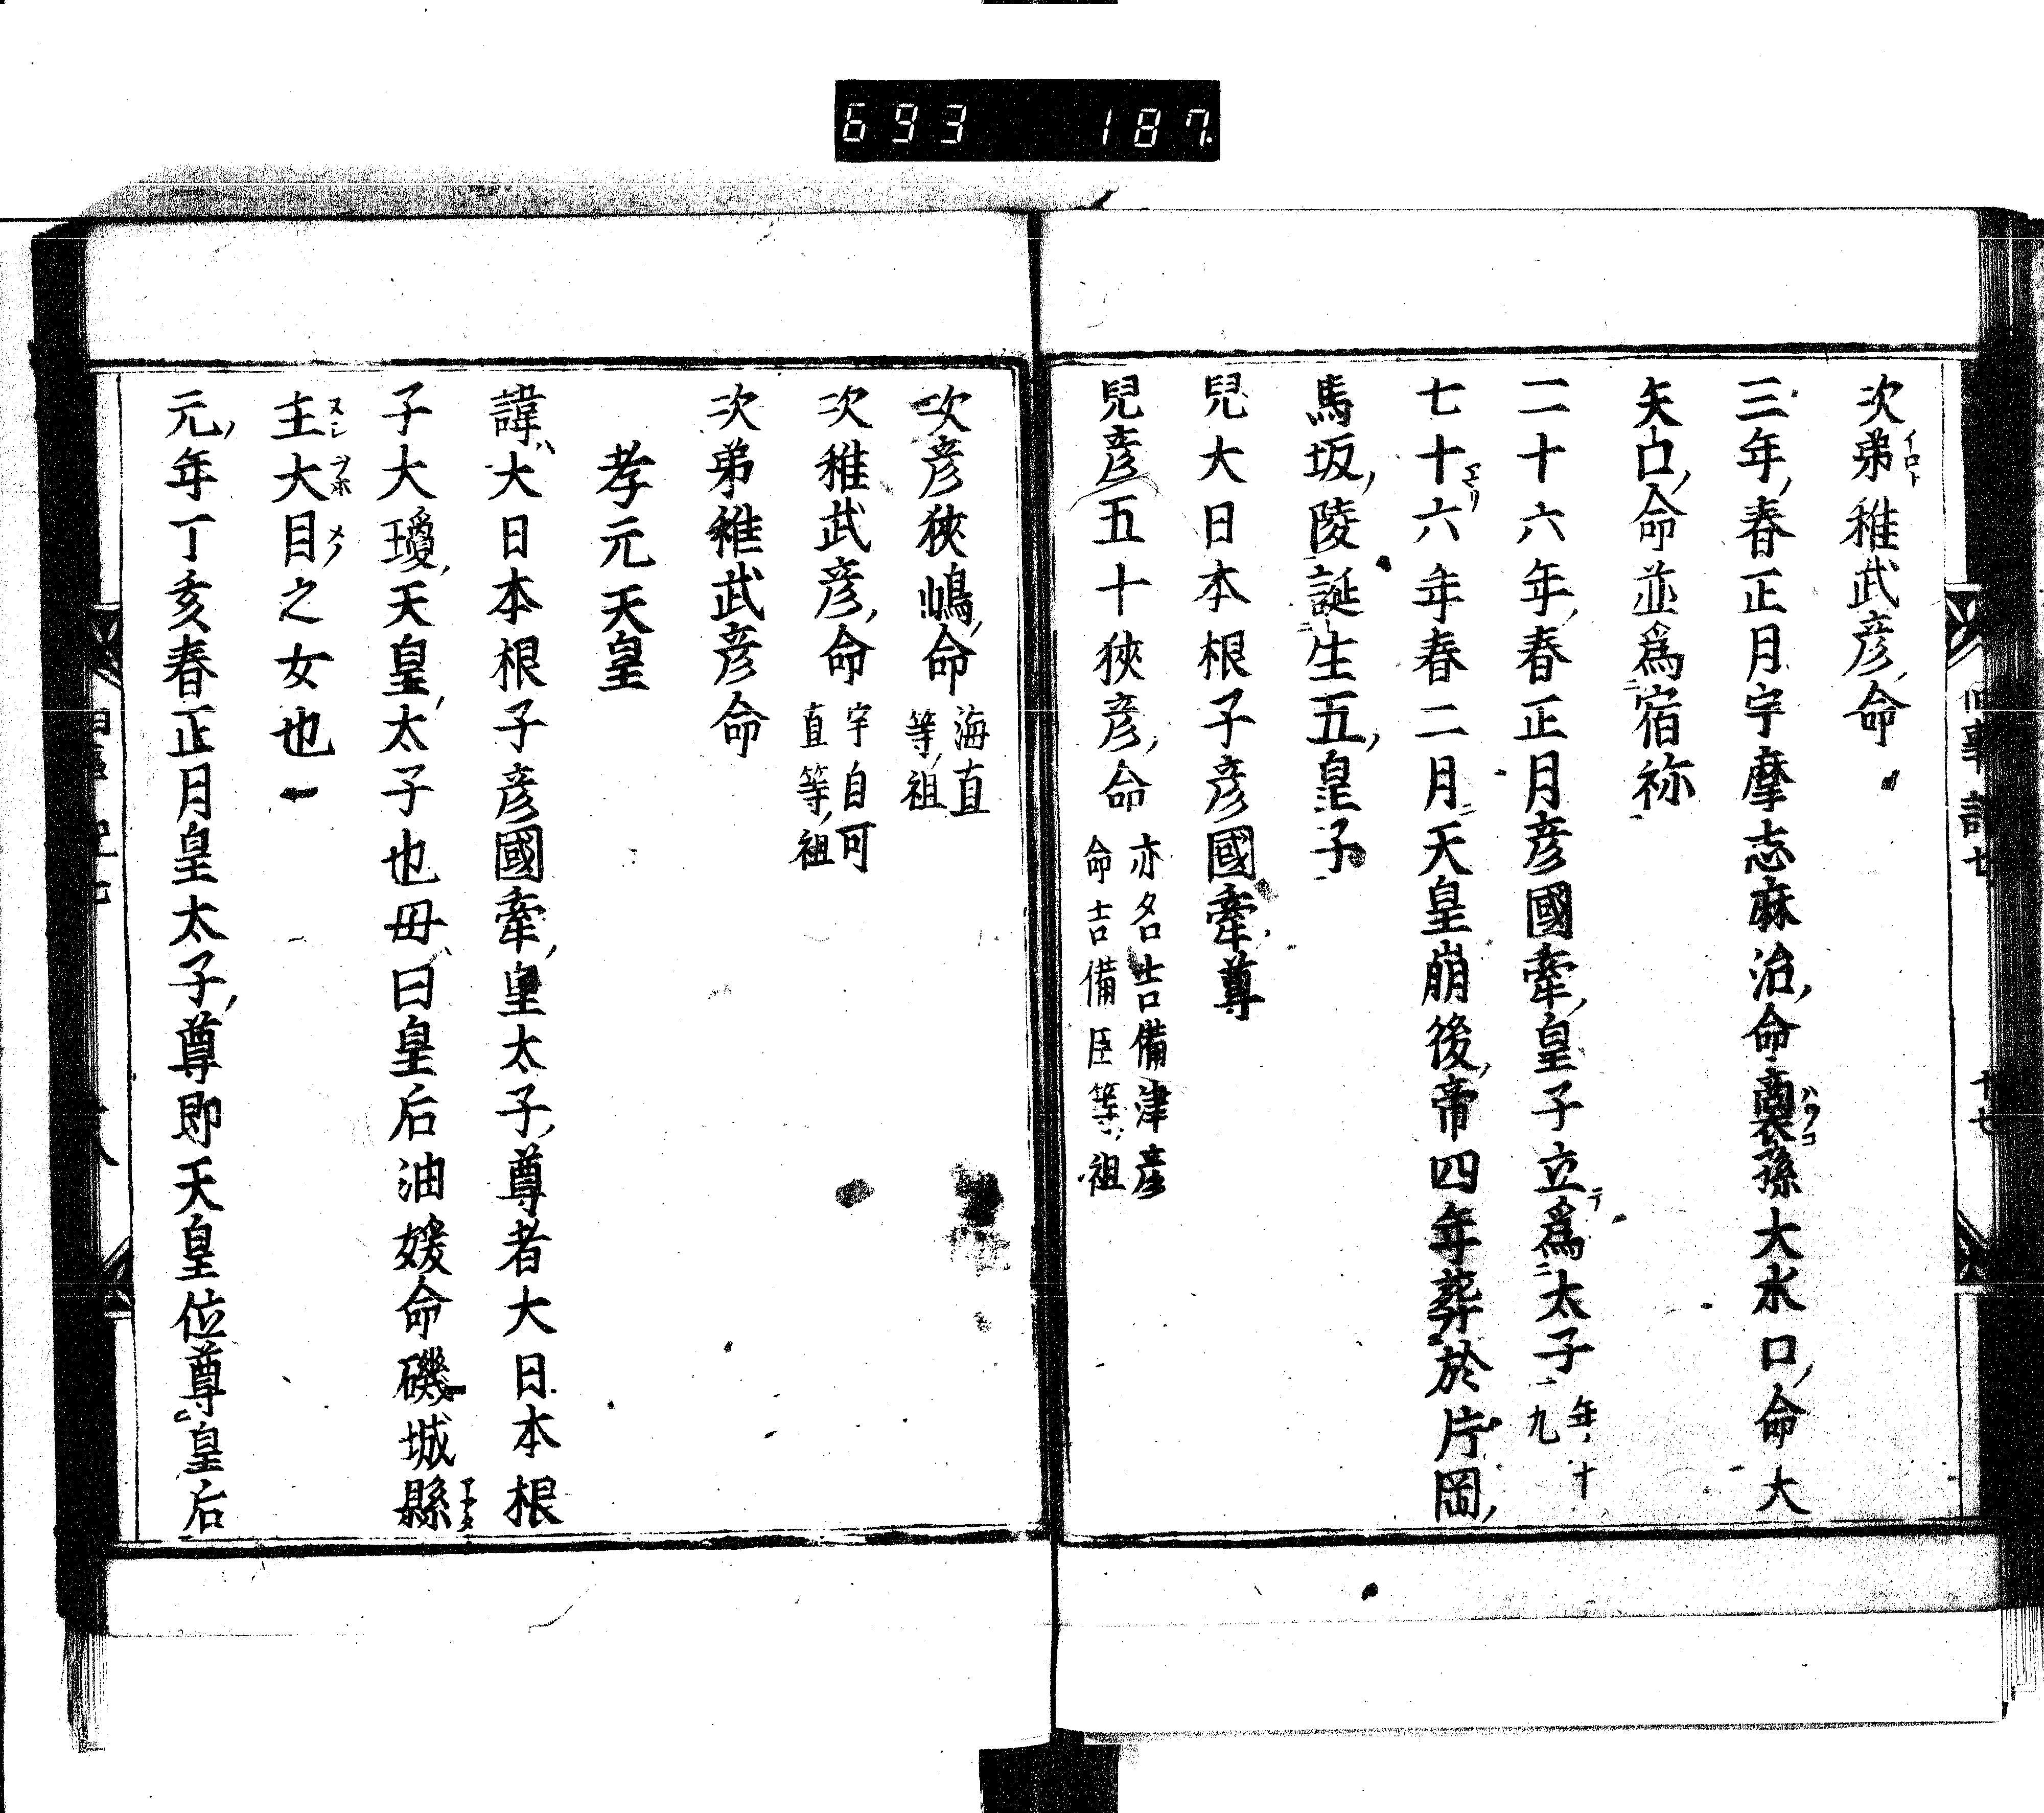 693 187
次弟稚武彦命
三年春正月宇摩志麻治命裔孫大水口命大
矢口命並爲宿祢
二十六年春正月彦國牽皇子立爲太子年十九
七十六年春二月天皇崩後帝四年葬於片岡
馬坂陵誕生五皇子
兒大日本根子彦國牽尊
兒彦五十狹彦命亦名吉備津彦命吉備臣等祖
次彦狹嶋命海直等祖
次稚武彦命宇自可直等祖
次弟稚武彦命
孝元天皇
諱大日本根子彦國牽皇太子尊者大日本根
子大瓊天皇太子也毋曰皇后油媛命磯城縣
主大目之女也
元年丁亥春正月皇太子尊即天皇位尊皇后